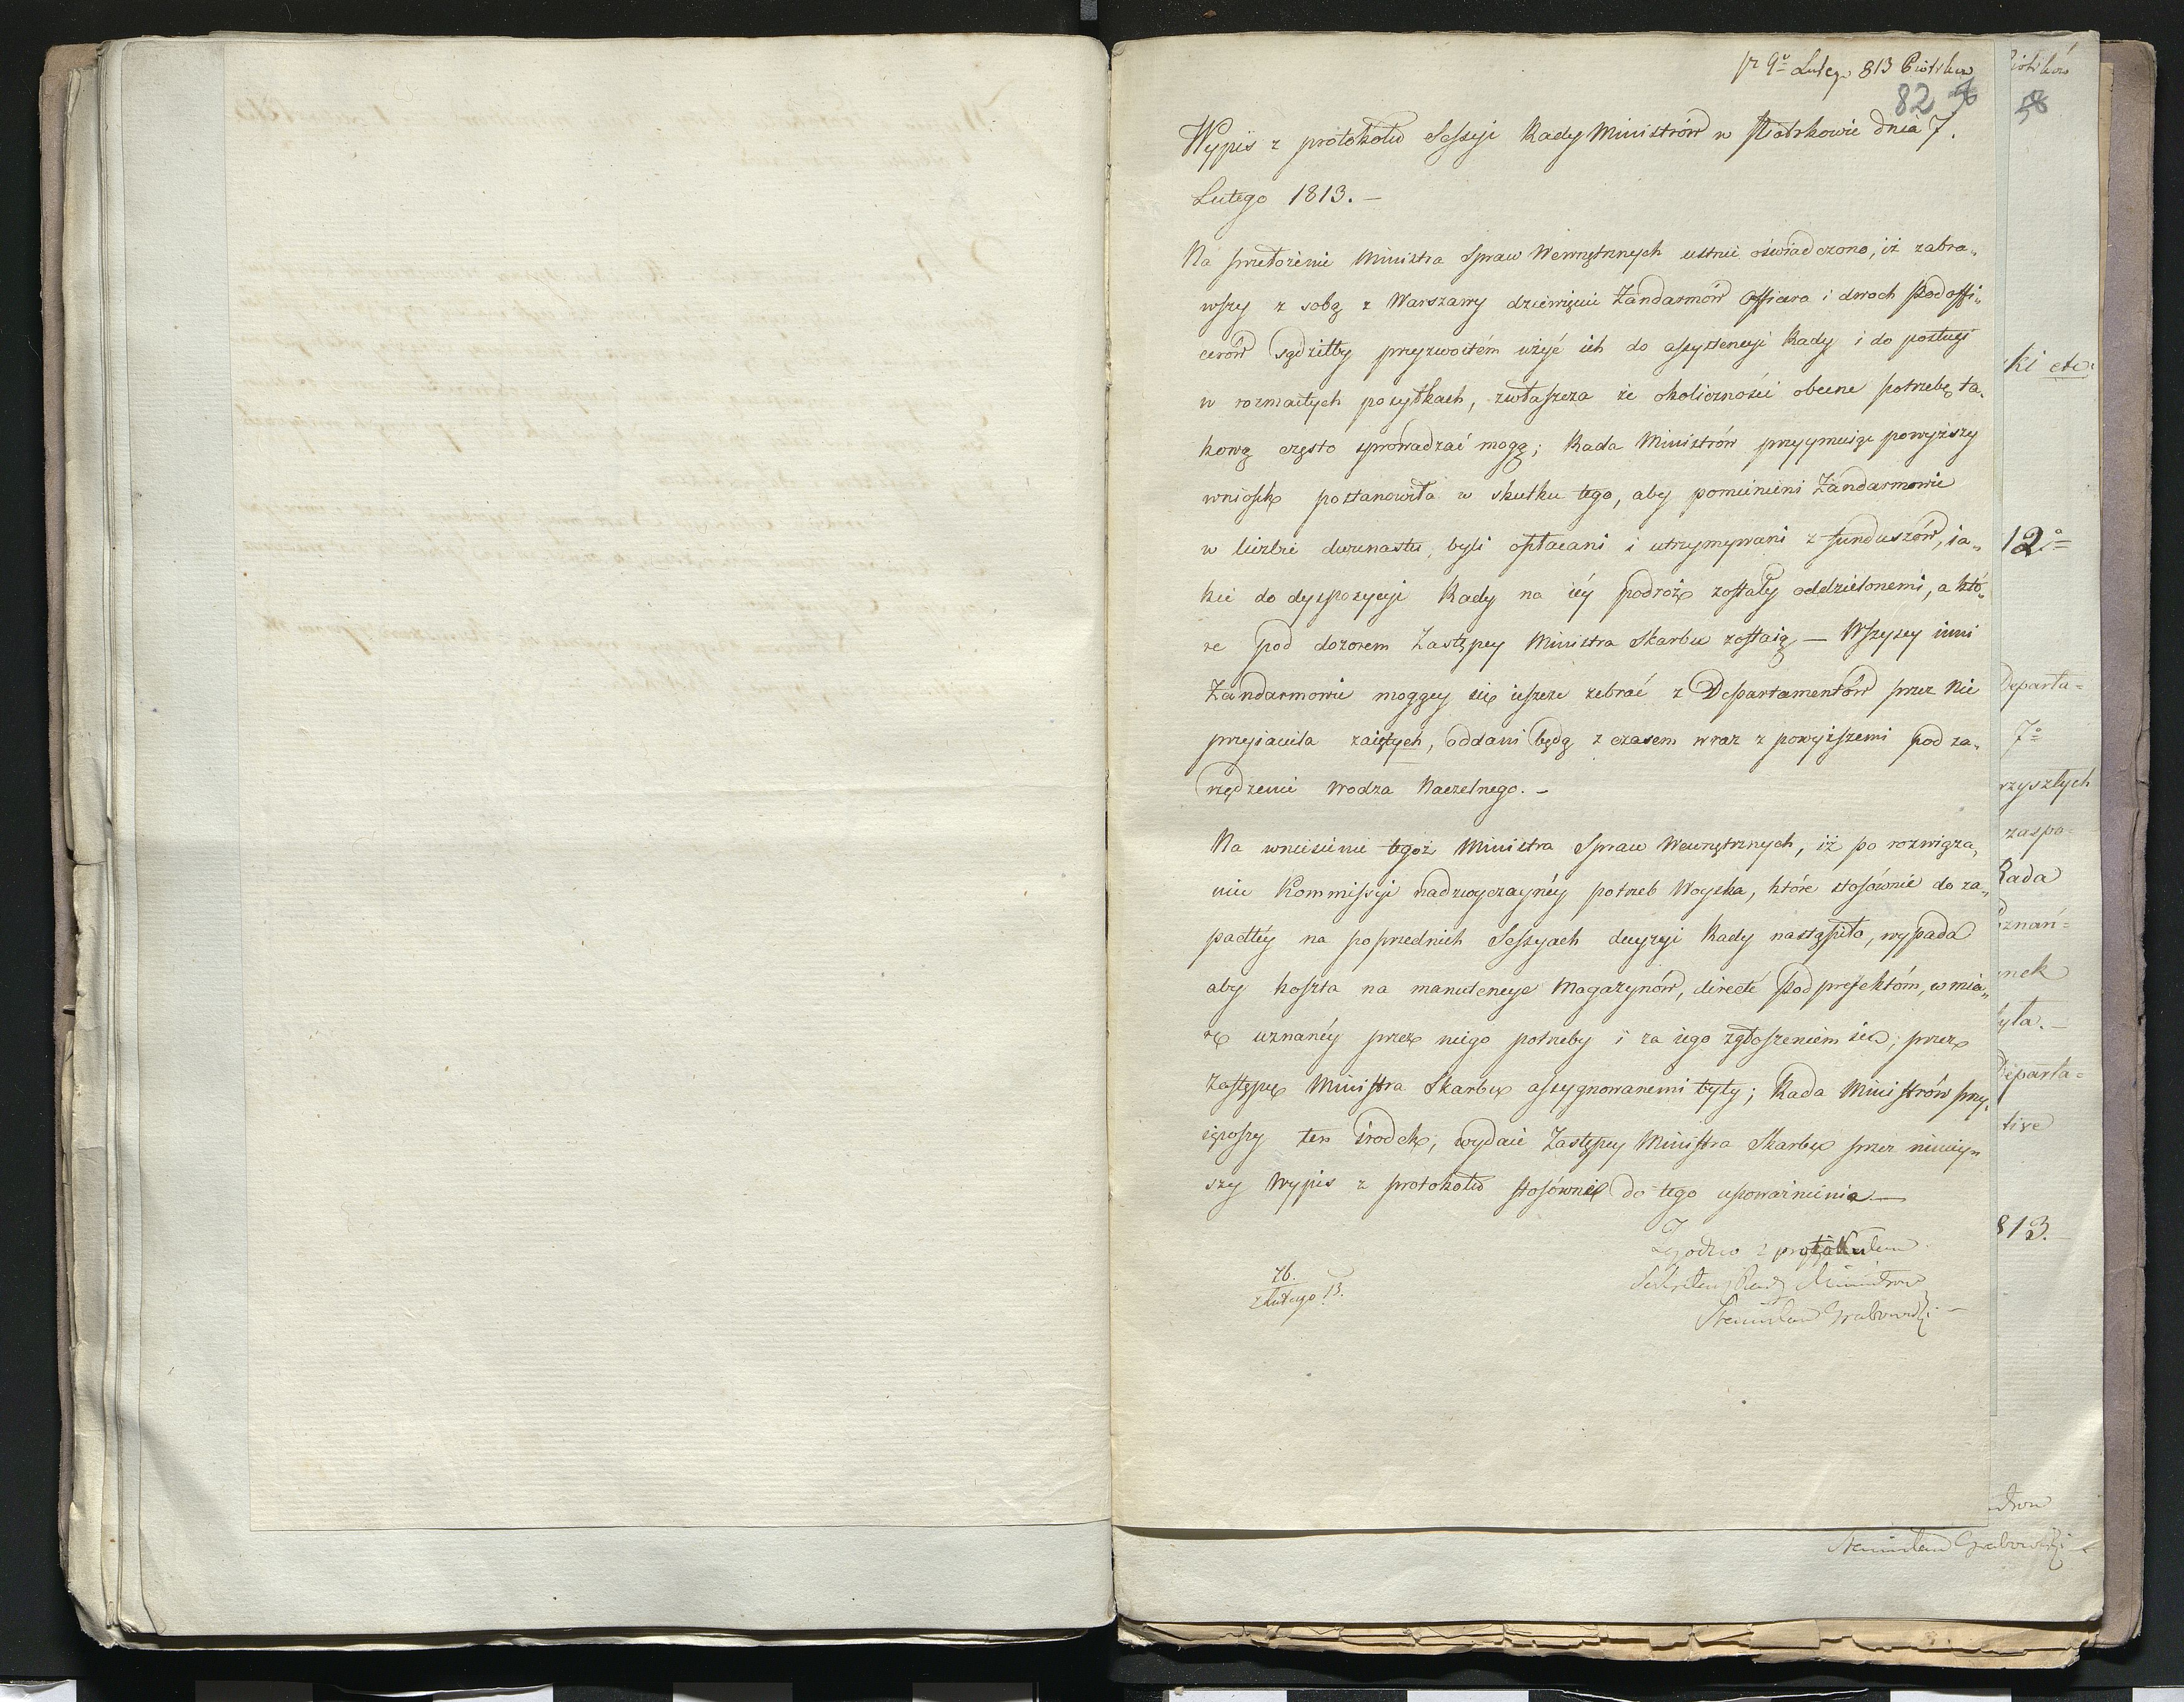 pr 9º Lutego 813 Piotrków
82
Wypis z protokołu Sessyi Rady Ministrów w Piotrkowie dnia 7.
Lutego 1813. —
Na przełożenie Ministra Spraw Wewnętrznych ustnie oświadczono, iż zabra„
wszy z sobą z Warszawy dziewięciu Żandarmów Officera i dwoch Podoffi„
cerów sądziłby przyzwoitém użyć ich do assystencyi Rady i do posługi
w rozmaitych posyłkach, zwłaszcza że okoliczności obecne potrzebę ta„
kową często sprowadzać mogą; Rada Ministrów przyymuiąc powyższy
wniosek postanowiła w skutku tego, aby pomienieni Żandarmowie
w liczbie dwunastu, byli opłacani i utrzymywani z funduszów, ia„
kie do dyspozycyi Rady na iéy podróż zostały oddzielonemi, a któ„
re pod dozorem Zastępcy Ministra Skarbu zostaią — Wszyscy inni
Żandarmowie mogący się ieszcze zebrać z Departamentów przez Nie
przyiaciela zaiętych, oddani będą z czasem wraz z powyższemi pod za„
rządzenie Wodza Naczelnego. —
Na wniesienie tegoż Ministra Spraw Wewnętrznych, iż po rozwiąza„
niu Kommissyi nadzwyczaynéy potrzeb Woyska, które stosównie do za„
padłéy na poprzednich Sessyach decyzyi Rady nastąpiło, wypada
aby koszta na manutencye Magazynów, directe Podprefektóm, w mia„
rę uznanéy przez niego potrzeby i za iego zgłoszeniem się, przez
Zastępcę Ministra Skarbu assygnowanemi były; Rada Ministrów przy„
iąwszy ten środek, wydaie Zastępcy Ministra Skarbu przez ninieу„
szy Wypis z protokołu stosównie do tego upoważnienia —
Zgodno z protokułem
Sekretarz Rady Ministrów
Stanisław Grabowski —
76.
z Lutego 13.
Piotrków
58
ki etc:
12º
Departa=
7º
rzyszłych
zaspo=
Rada
oznań=
nek
yła. —
Departa=
tive
813.
Stanisław Grabowski